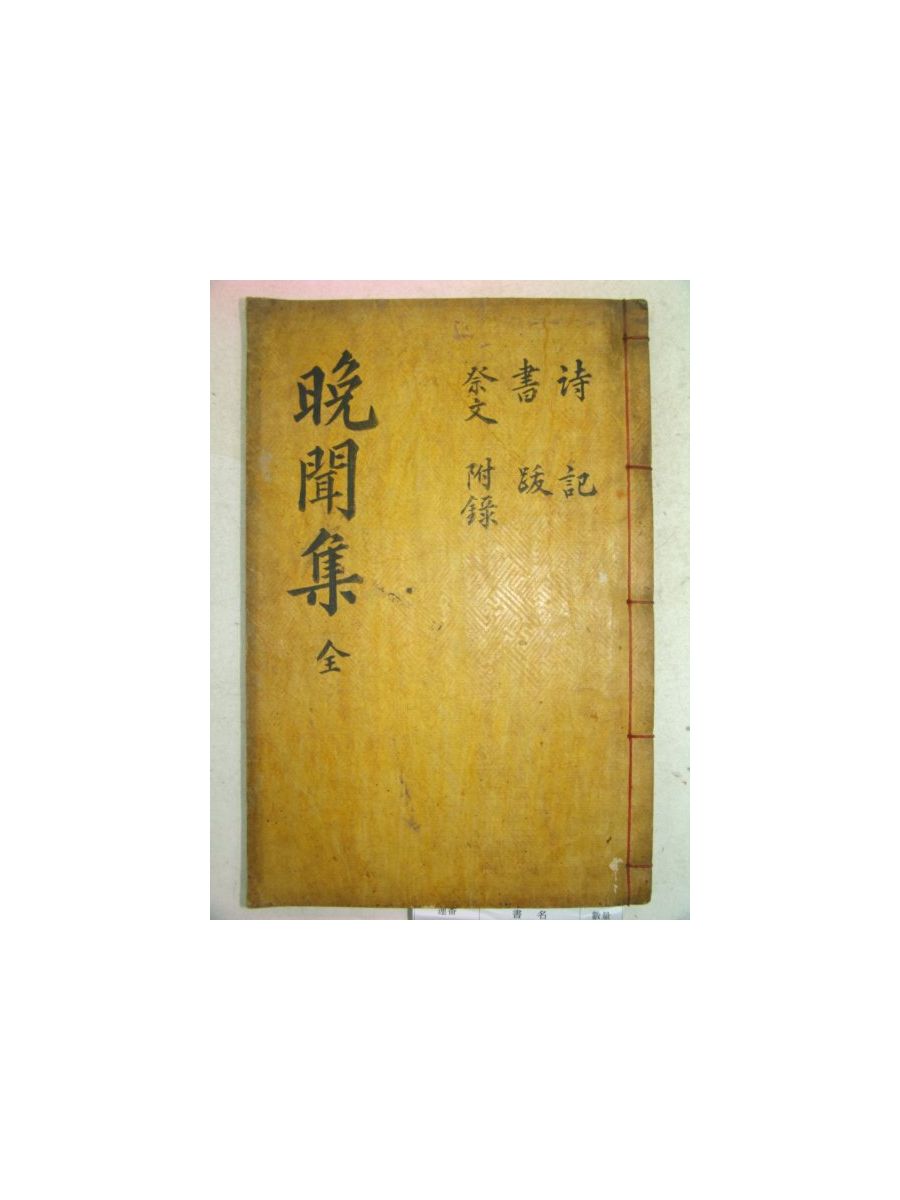 詩 記
書 跋
祭文 附錄
晩聞集 全
書 名
數量